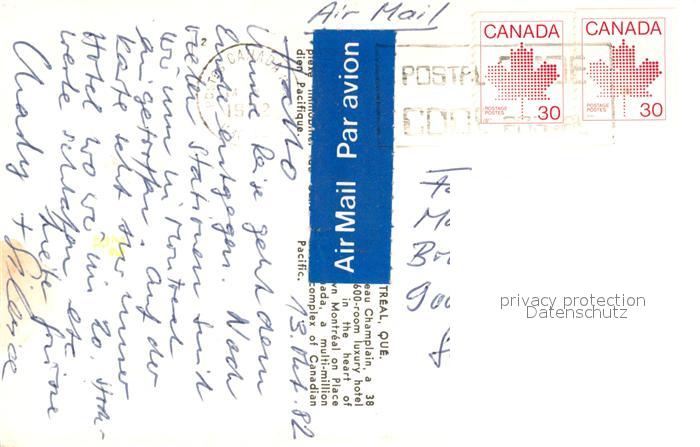 Air Mail
CANADA
CANADA
POSTAGE
POSTES
30
POSTAGE
POSTES
30
POSTAL CODE
CODE POSTAL
Air Mail Par avion
privacy protection
Datenschutz
13. Okt. 82
Hallo
Unsere Reise geht dem
Ende entgegen. Nach
vielen Stationen sind
wir nun in Montreal
eingetroffen. Auf der
Karte seht Ihr unser
Hotel wo wir im 20. Stock-
werk schlafen etc.
Liebe Grüsse
Charly +
TREAL, QUE.
eau Champlain, a 38
600-room luxury hotel
in the heart of
wn Montréal on Place
ada, a multi-million
complex of Canadian
Pacific.
plexe immobilier de
dien Pacifique.